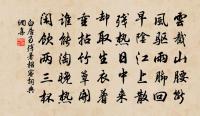 雲截山腰斷
風驅雨腳回
早陰江上散
殘熱日中來
却取生衣著
重拈竹簟開
誰能淘晚熱
閒飲兩三杯
白居易殘暑招客詞典
網集